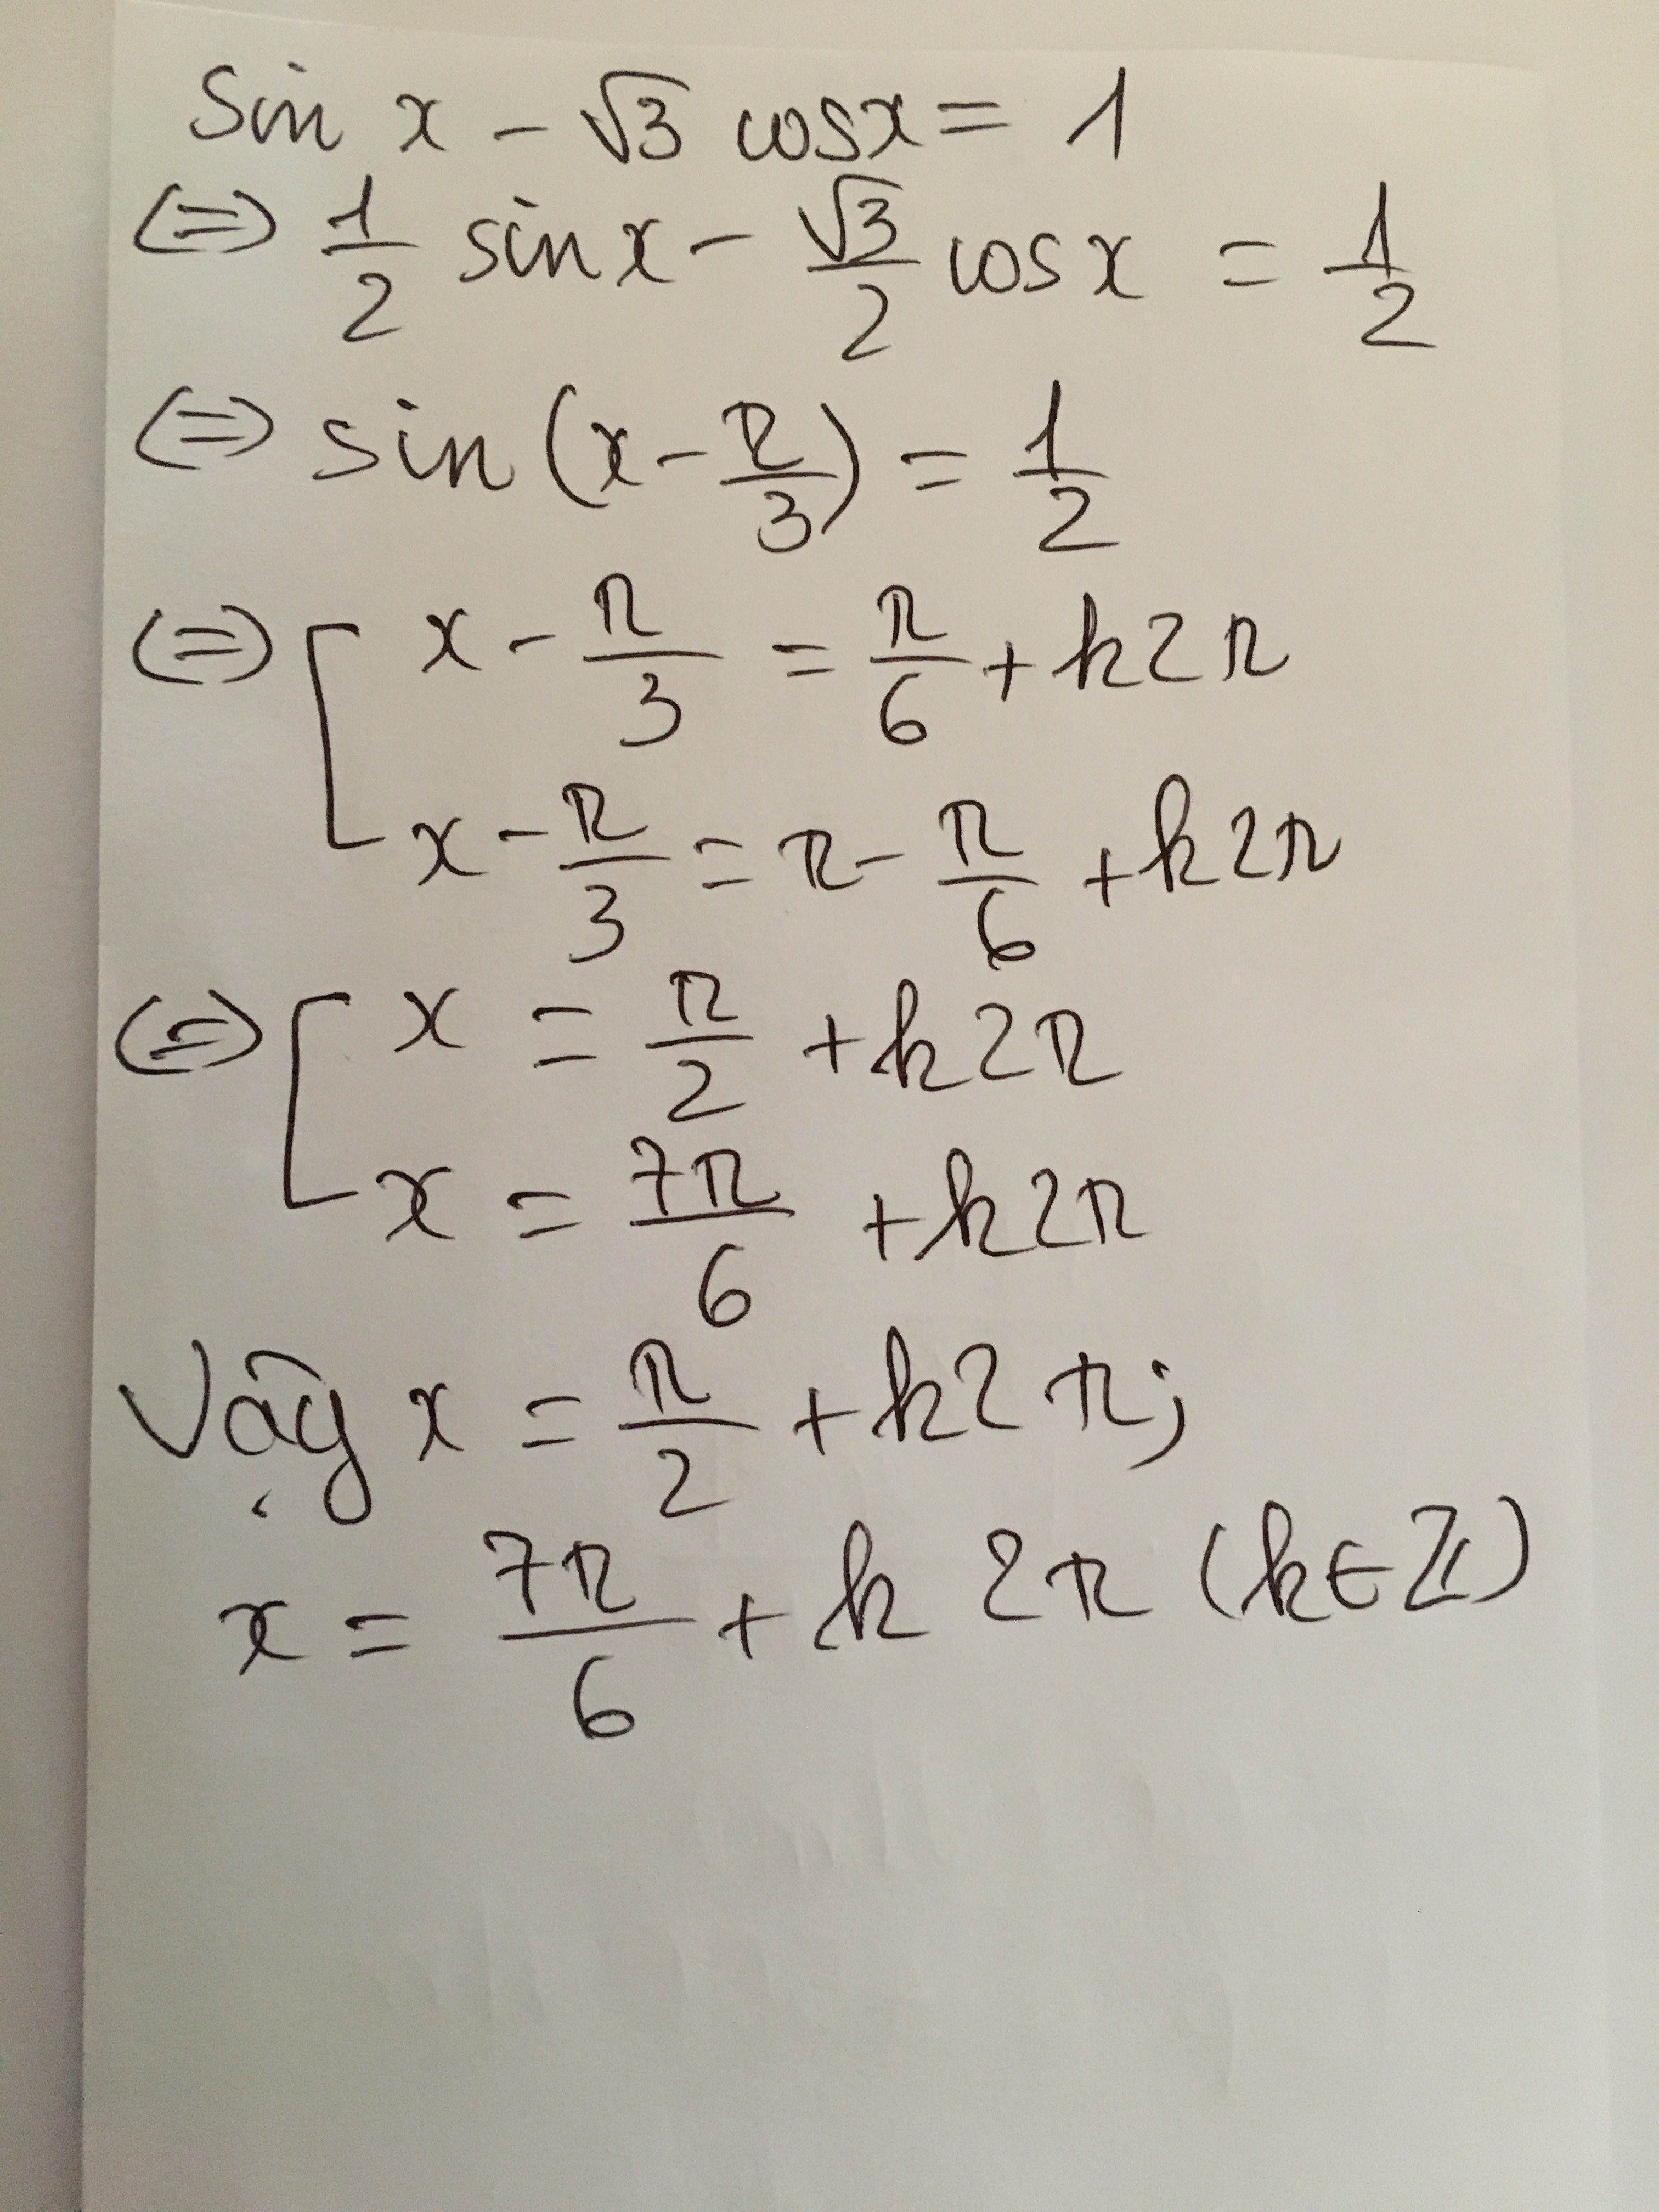 sin x - √3 cosx = 1
(=) 1/2 sinx - √3/2 cosx = 1/2
(=) sin(x - π/3) = 1/2
(=) [ x - π/3 = π/6 + k2π
x - π/3 = π - π/6 + k2π
(=) [ x = π/2 + k2π
x = 7π/6 + k2π
Vậy x = π/2 + k2π;
x = 7π/6 + k2π (k∈ℤ)